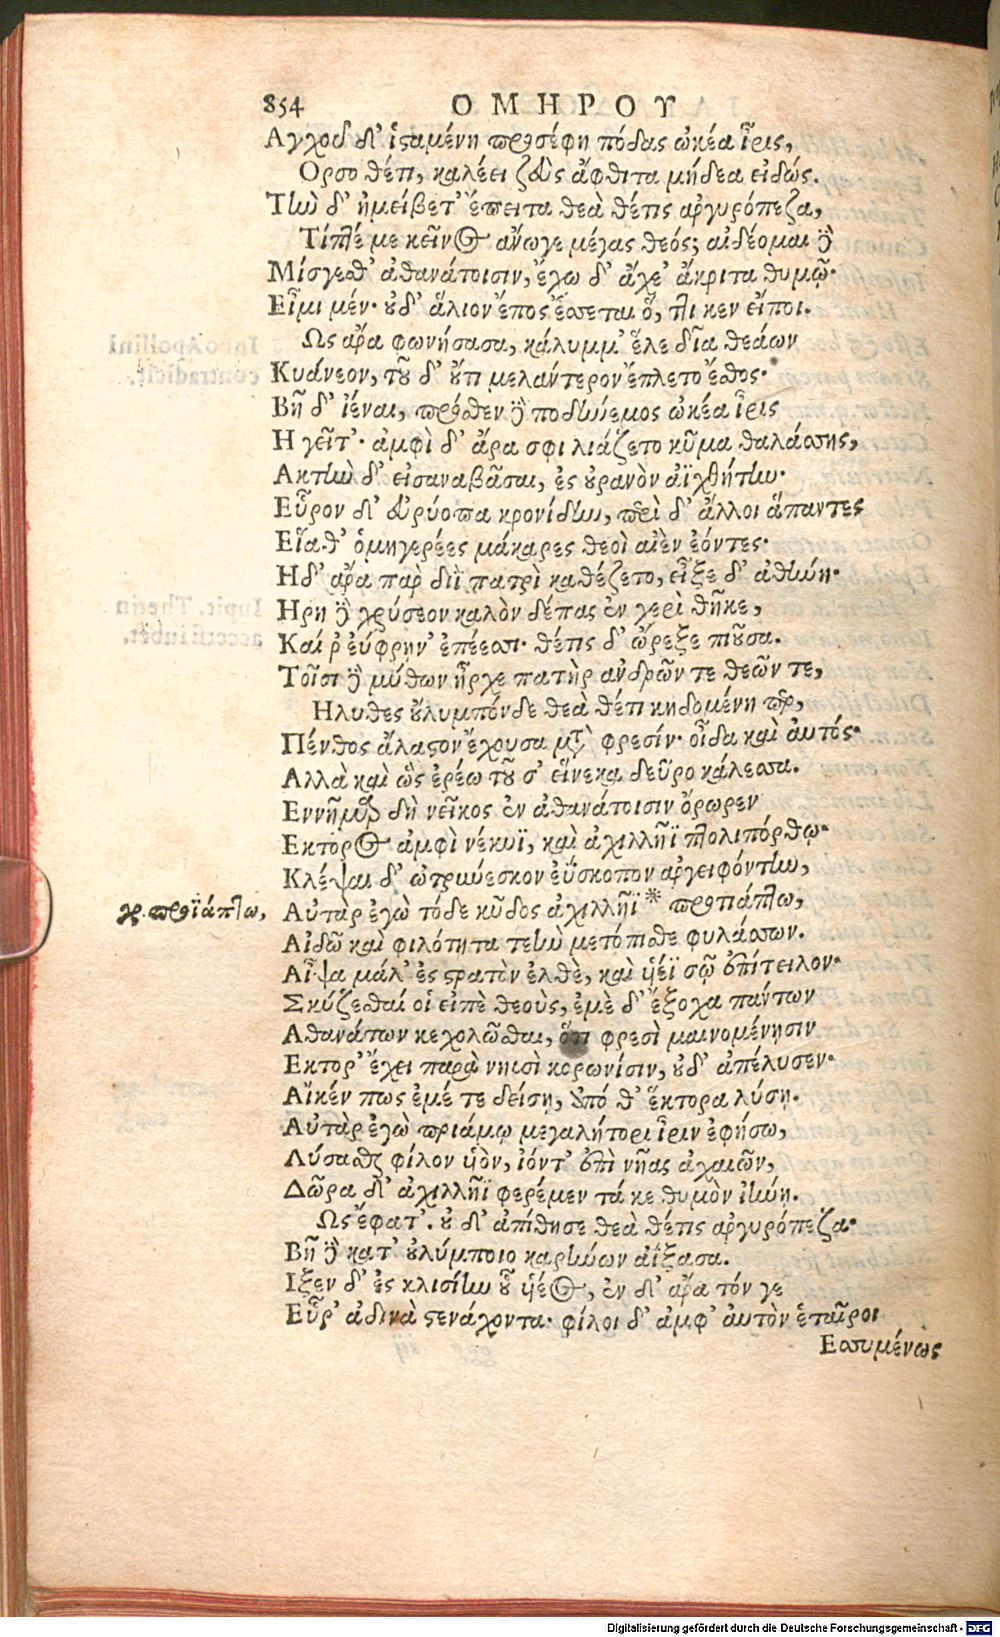 854 ΟΜΗΡΟΥ
Αγχοῦ δ' ἱσαμένη προσέφη πόδας ὠκέα ἶρις,
Ορσο θέτι, καλέει ζεὺς ἄφθιτα μήδεα εἰδώς.
Τὴν δ' ἠμείβετ' ἔπειτα θεὰ θέτις ἀργυρόπεζα,
Τίπτέ με κεῖνος ἄνωγε μέγας θεός; αἰδέομαι δὲ
Μίσγεσθ' ἀθανάτοισιν, ἔχω δ' ἄχε' ἄκριτα θυμῷ·
Εἶμι μέν· οὐδ' ἅλιον ἔπος ἔσσεται ὅ, τι κεν εἴποι.
Ως ἄρα φωνήσασα, κάλυμμ' ἕλε δῖα θεάων
Κυάνεον, τοῦ δ' οὔτι μελάντερον ἔπλετο ἔσθος·
Βῆ δ' ἰέναι, πρόσθεν δὲ ποδήνεμος ὠκέα ἶρις
Ηγεῖτ'· ἀμφὶ δ' ἄρα σφι λιάζετο κῦμα θαλάσσης,
Ακτὴν δ' εἰσαναβᾶσαι, ἐς οὐρανὸν ἀϊχθήτην·
Εὗρον δ' εὐρύοπα κρονίδην, περὶ δ' ἄλλοι ἅπαντες
Εἵαθ' ὁμηγερέες μάκαρες θεοὶ αἰὲν ἐόντες·
Ηδ' ἄρα παρ διῒ πατρὶ καθέζετο, εἶξε δ' ἀθήνη·
Ηρη δὲ χρύσεον καλὸν δέπας ἐν χερὶ θῆκε,
Καί ῥ' εὔφρην' ἐπέεσσι· θέτις δ' ὤρεξε πιοῦσα.
Τοῖσι δὲ μύθων ἦρχε πατὴρ ἀνδρῶν τε θεῶν τε,
Ηλυθες οὔλυμπόνδε θεὰ θέτι κηδομένη περ,
Πένθος ἄλαστον ἔχουσα μετὰ φρεσίν· οἶδα καὶ αὐτός·
Αλλὰ καὶ ὣς ἐρέω τοῦ σ' εἵνεκα δεῦρο κάλεσσα.
Εννῆμαρ δὴ νεῖκος ἐν ἀθανάτοισιν ὄρωρεν
Εκτορος ἀμφὶ νέκυϊ, καὶ ἀχιλλῆϊ πτολιπόρθῳ·
Κλέψαι δ' ὠτρύνεσκον ἐΰσκοπον ἀργειφόντην,
γρ. προϊάπτω, Αὐτὰρ ἐγὼ τόδε κῦδος ἀχιλλῆϊ * προτιάπτω,
Αἰδῶ καὶ φιλότητα τεὴν μετόπισθε φυλάσσων.
Αἶψα μάλ' ἐς στρατὸν ἐλθὲ, καὶ υἱέϊ σῷ ἐπίτειλον·
Σκύζεσθαί οἱ εἰπὲ θεοὺς, ἐμὲ δ' ἔξοχα πάντων
Αθανάτων κεχολῶσθαι, ὅτι φρεσὶ μαινομένῃσιν
Εκτορ' ἔχει παρὰ νηυσὶ κορωνίσιν, οὐδ' ἀπέλυσεν·
Αἴκέν πως ἐμέ τε δείσῃ, ἀπό θ' ἕκτορα λύσῃ.
Αὐτὰρ ἐγὼ πριάμῳ μεγαλήτορι ἶριν ἐφήσω,
Λύσασθαι φίλον υἱὸν, ἰόντ' ἐπὶ νῆας ἀχαιῶν,
Δῶρα δ' ἀχιλλῆϊ φερέμεν τά κε θυμὸν ἰήνῃ.
Ως ἔφατ'. οὐ δ' ἀπίθησε θεὰ θέτις ἀργυρόπεζα·
Βῆ δὲ κατ' οὐλύμποιο καρήνων ἀΐξασα.
Ιξεν δ' ἐς κλισίην οὗ υἱέος, ἐν δ' ἄρα τόν γε
Εὗρ' ἀδινὰ στενάχοντα· φίλοι δ' ἀμφ' αὐτὸν ἑταῖροι
Εσσυμένως
Digitalisierung gefördert durch die Deutsche Forschungsgemeinschaft - DFG